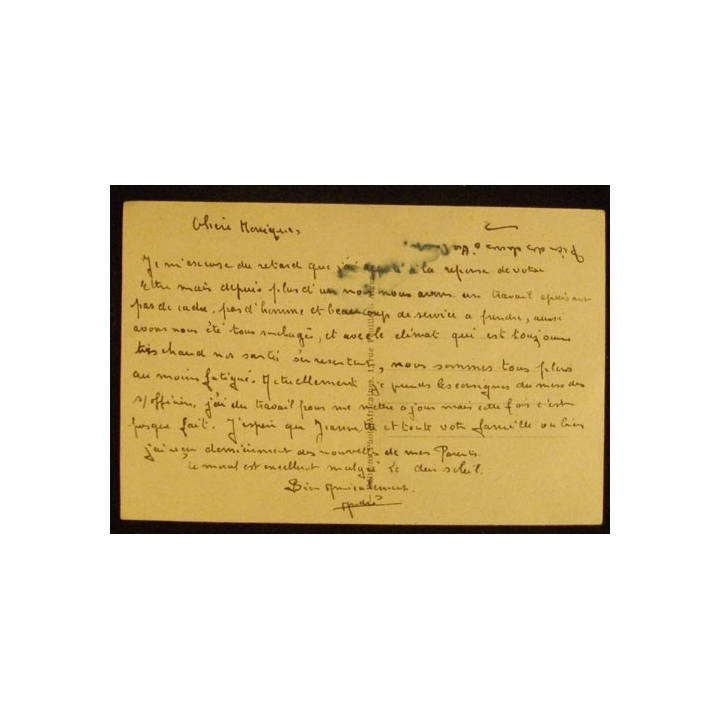 Chère Monique,
Je m'excuse du retard que j'ai à la reponse de votre
lettre mais depuis plus d'un mois nous avons un travail epuisant
pas de cadre, pas d'homme et beaucoup de service a prendre, aussi
avons nous été tous surchargé, et avec le climat qui est toujours
très chaud nos santé s'en ressentent, nous sommes tous plus
ou moins fatigué. Actuellement je prends les consignes du mess des
s/officiers, j'ai du travail pour me mettre à jour mais cette fois c'est
presque fait. J'espère que Jeannette et toute votre famille va bien
j'ai reçu dernièrement des nouvelles de mes Parents.
Le moral est excellent malgré le dur soleil.
Bien Amicalement.
André